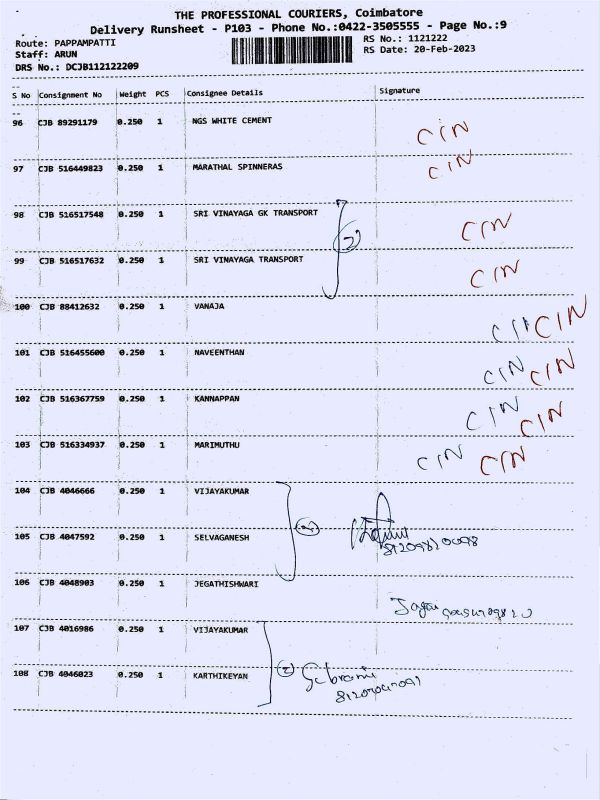 THE PROFESSIONAL COURIERS, Coimbatore
Delivery Runsheet - P103 - Phone No.:0422-3505555 - Page No.:9
Route: PAPPAMPATTI RS No.: 1121222
Staff: ARUN RS Date: 20-Feb-2023
DRS No.: DCJB112122209
S No Consignment No Weight PCS Consignee Details Signature
96 CJB 89291179 0.250 1 NGS WHITE CEMENT CIN
97 CJB 516449823 0.250 1 MARATHAL SPINNERAS CIN
98 CJB 516517548 0.250 1 SRI VINAYAGA GK TRANSPORT CIN
2
99 CJB 516517632 0.250 1 SRI VINAYAGA TRANSPORT CIN
100 CJB 88412632 0.250 1 VANAJA CIN CIN
101 CJB 516455600 0.250 1 NAVEENTHAN CIN CIN
102 CJB 516367759 0.250 1 KANNAPPAN CIN CIN
103 CJB 516334937 0.250 1 MARIMUTHU CIN CIN
104 CJB 4046666 0.250 1 VIJAYAKUMAR
105 CJB 4047592 0.250 1 SELVAGANESH
106 CJB 4048903 0.250 1 JEGATHISHWARI
107 CJB 4016986 0.250 1 VIJAYAKUMAR
108 CJB 4046023 0.250 1 KARTHIKEYAN 2